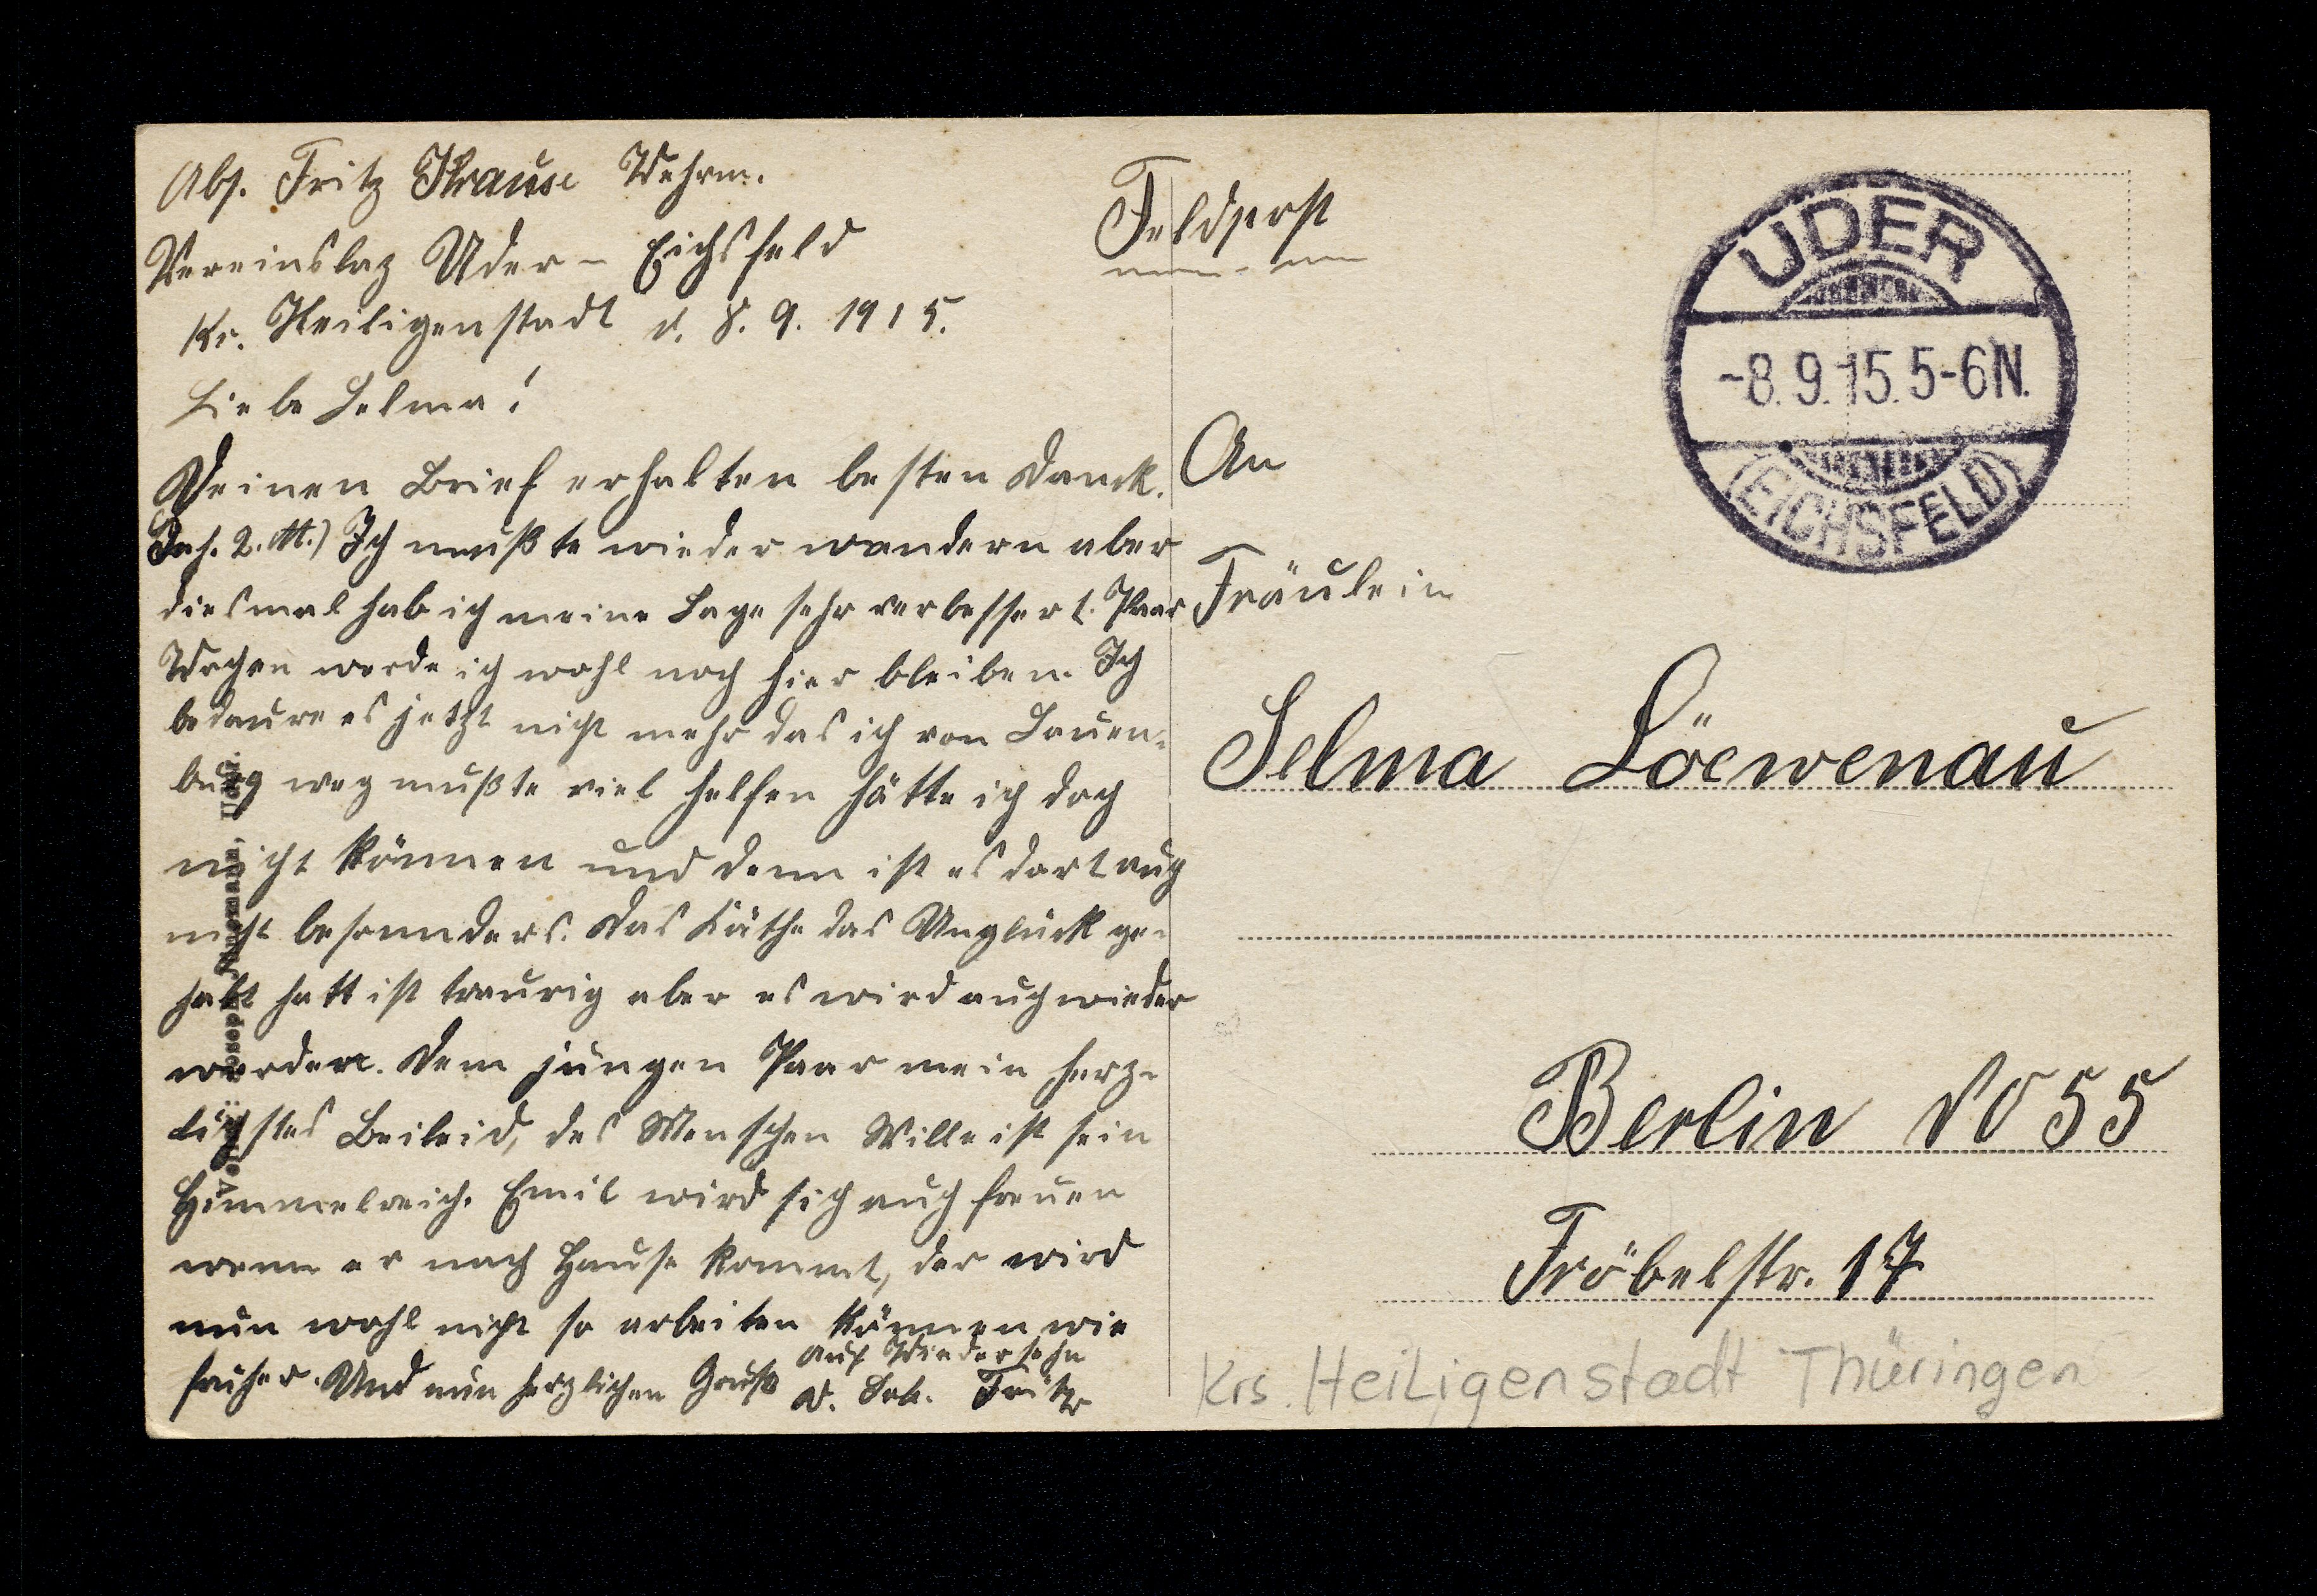 Abs. Fritz Krause Wehrm.
Vereinslaz Uder - Eichsfeld
Kr. Heiligenstadt d. 8. 9. 1915.
Liebe Selma!
Deinen Brief erhalten besten Danck.
Inh. 2. M.) Ich mußte wieder wandern aber
diesmal hab ich meine Lage sehr verbessert. Paar
Wochen werde ich wohl noch hier bleiben. Ich
bedaure es jetzt nicht mehr das ich von Lauen-
burg weg mußte viel helfen hätte ich doch
nicht können und denn ist es dort auch
nicht besonnders. Das Käthe das Unglück ge-
habt hatt ist traurig aber es wird auch wieder
werden. Dem jungen Paar mein herz-
lichstes Beileid, des Menschen Wille ist sein
Himmelreich. Emil wird sich auch freuen
wenn er nach Hause kommt, der wird
nun wohl nicht so arbeiten können wie
früher. Und nun herzlichen Gruß
Auf Wiedersehn
D. Fritz
Feldpost
An
Fräulein
Selma Löewenau
Berlin NO 55
Fröbelstr. 17
Krs. Heiligenstadt Thüringen
UDER
-8.9.15.5-6N.
(EICHSFELD)